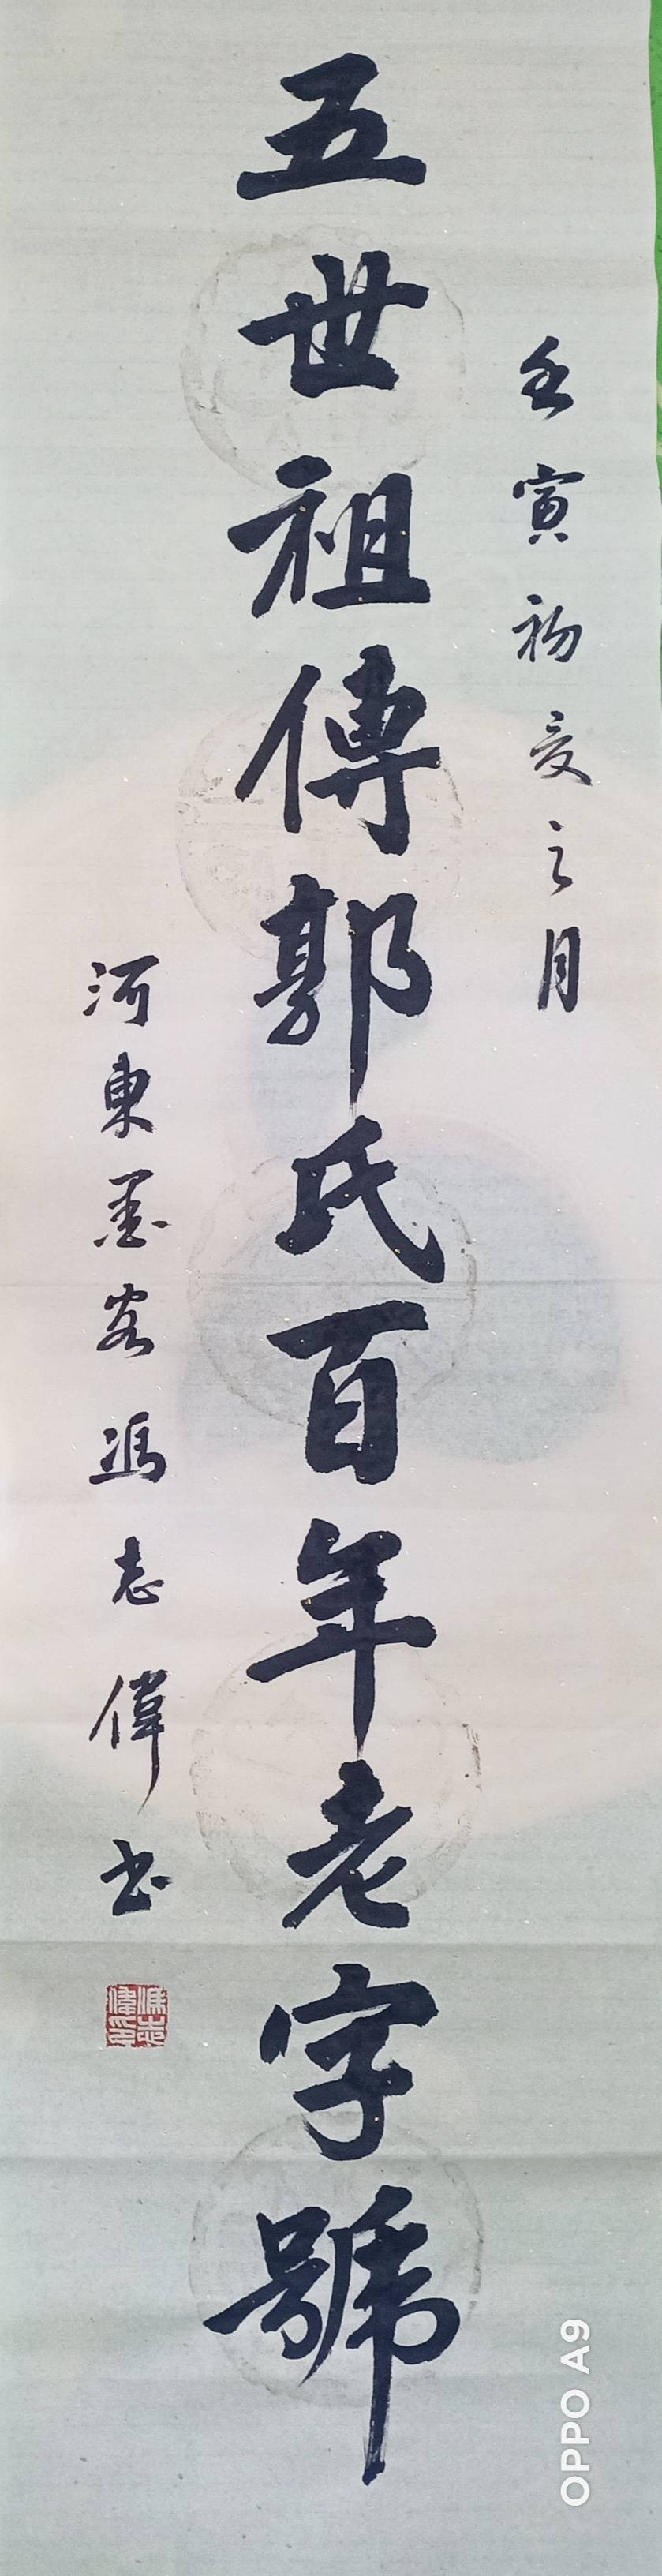 壬寅初夏之月
五世祖傳郭氏百年老字號
河東墨客馮志偉書
馮志偉印
OPPO A9